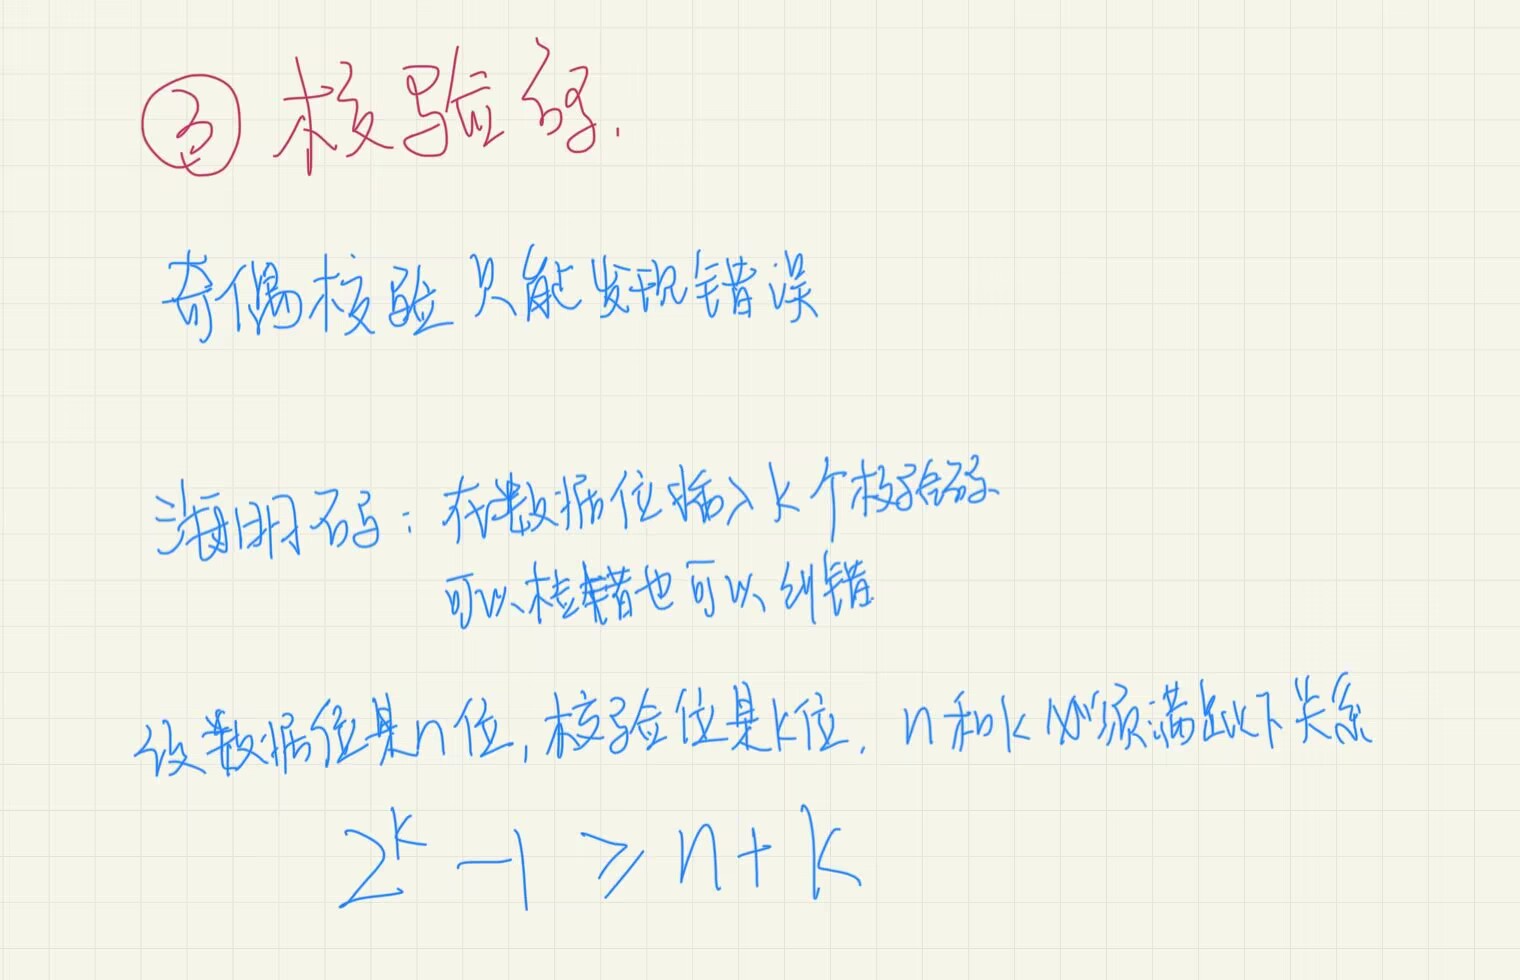 ③ 核验码.
奇偶核验只能发现错误
海明码：在数据位插入k个核验码
可以检错也可以纠错
设数据位是n位，校验位是k位，n和k必须满足以下关系
2^k -1 ≥ n+k